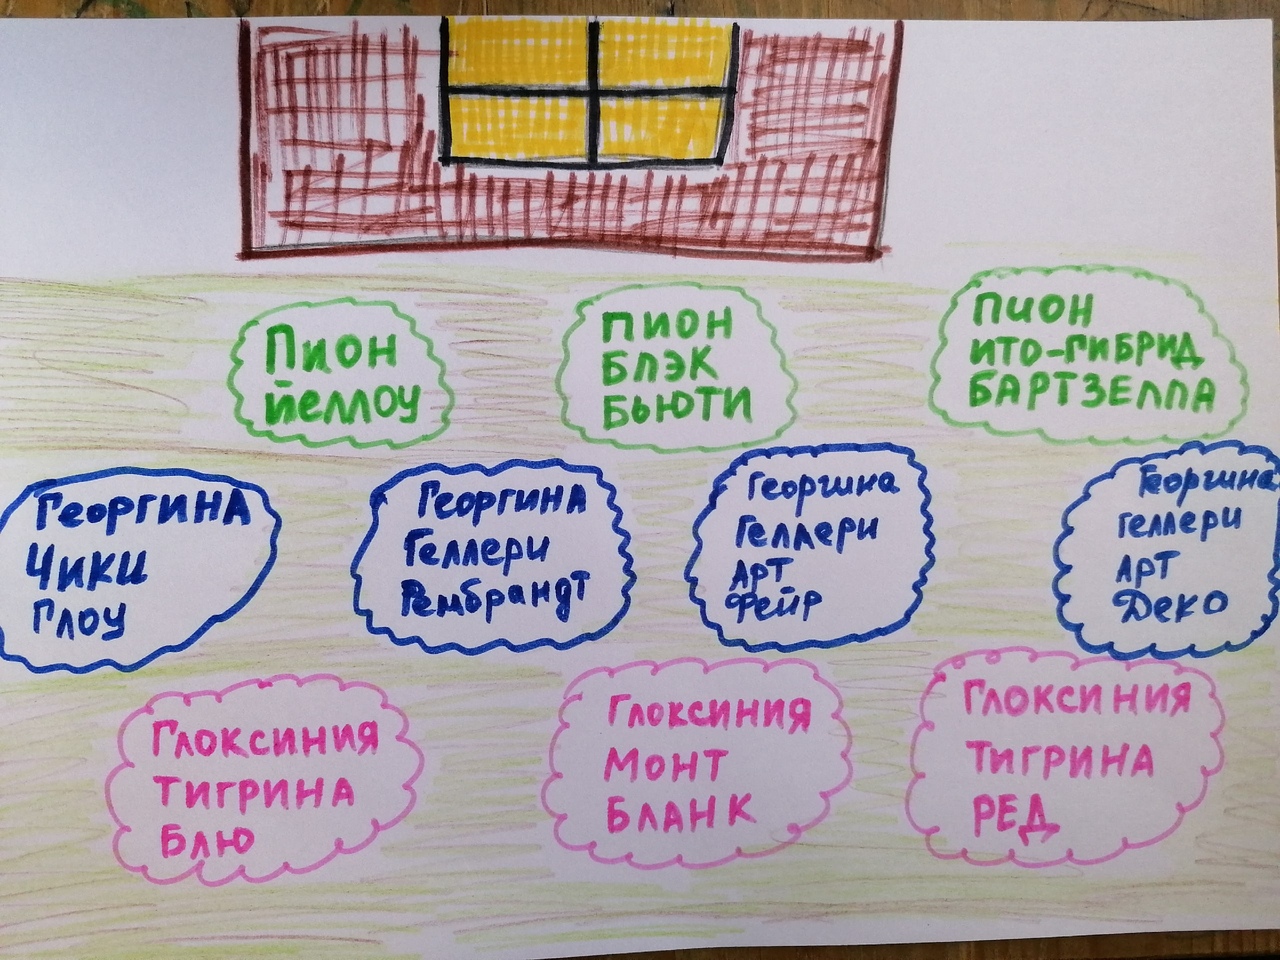 Пион
йеллоу
ПИОН
БЛЭК
БЬЮТИ
ПИОН
ИТО-ГИБРИД
БАРТЗЕЛЛА
ГеоргИНА
Чики
Глоу
Георгина
Геллери
Рембрандт
Георгина
Геллери
Арт
Фейр
Георгина
геллери
Арт
Деко
Глоксиния
Тигрина
Блю
Глоксиния
Монт
Бланк
Глоксиния
Тигрина
Ред